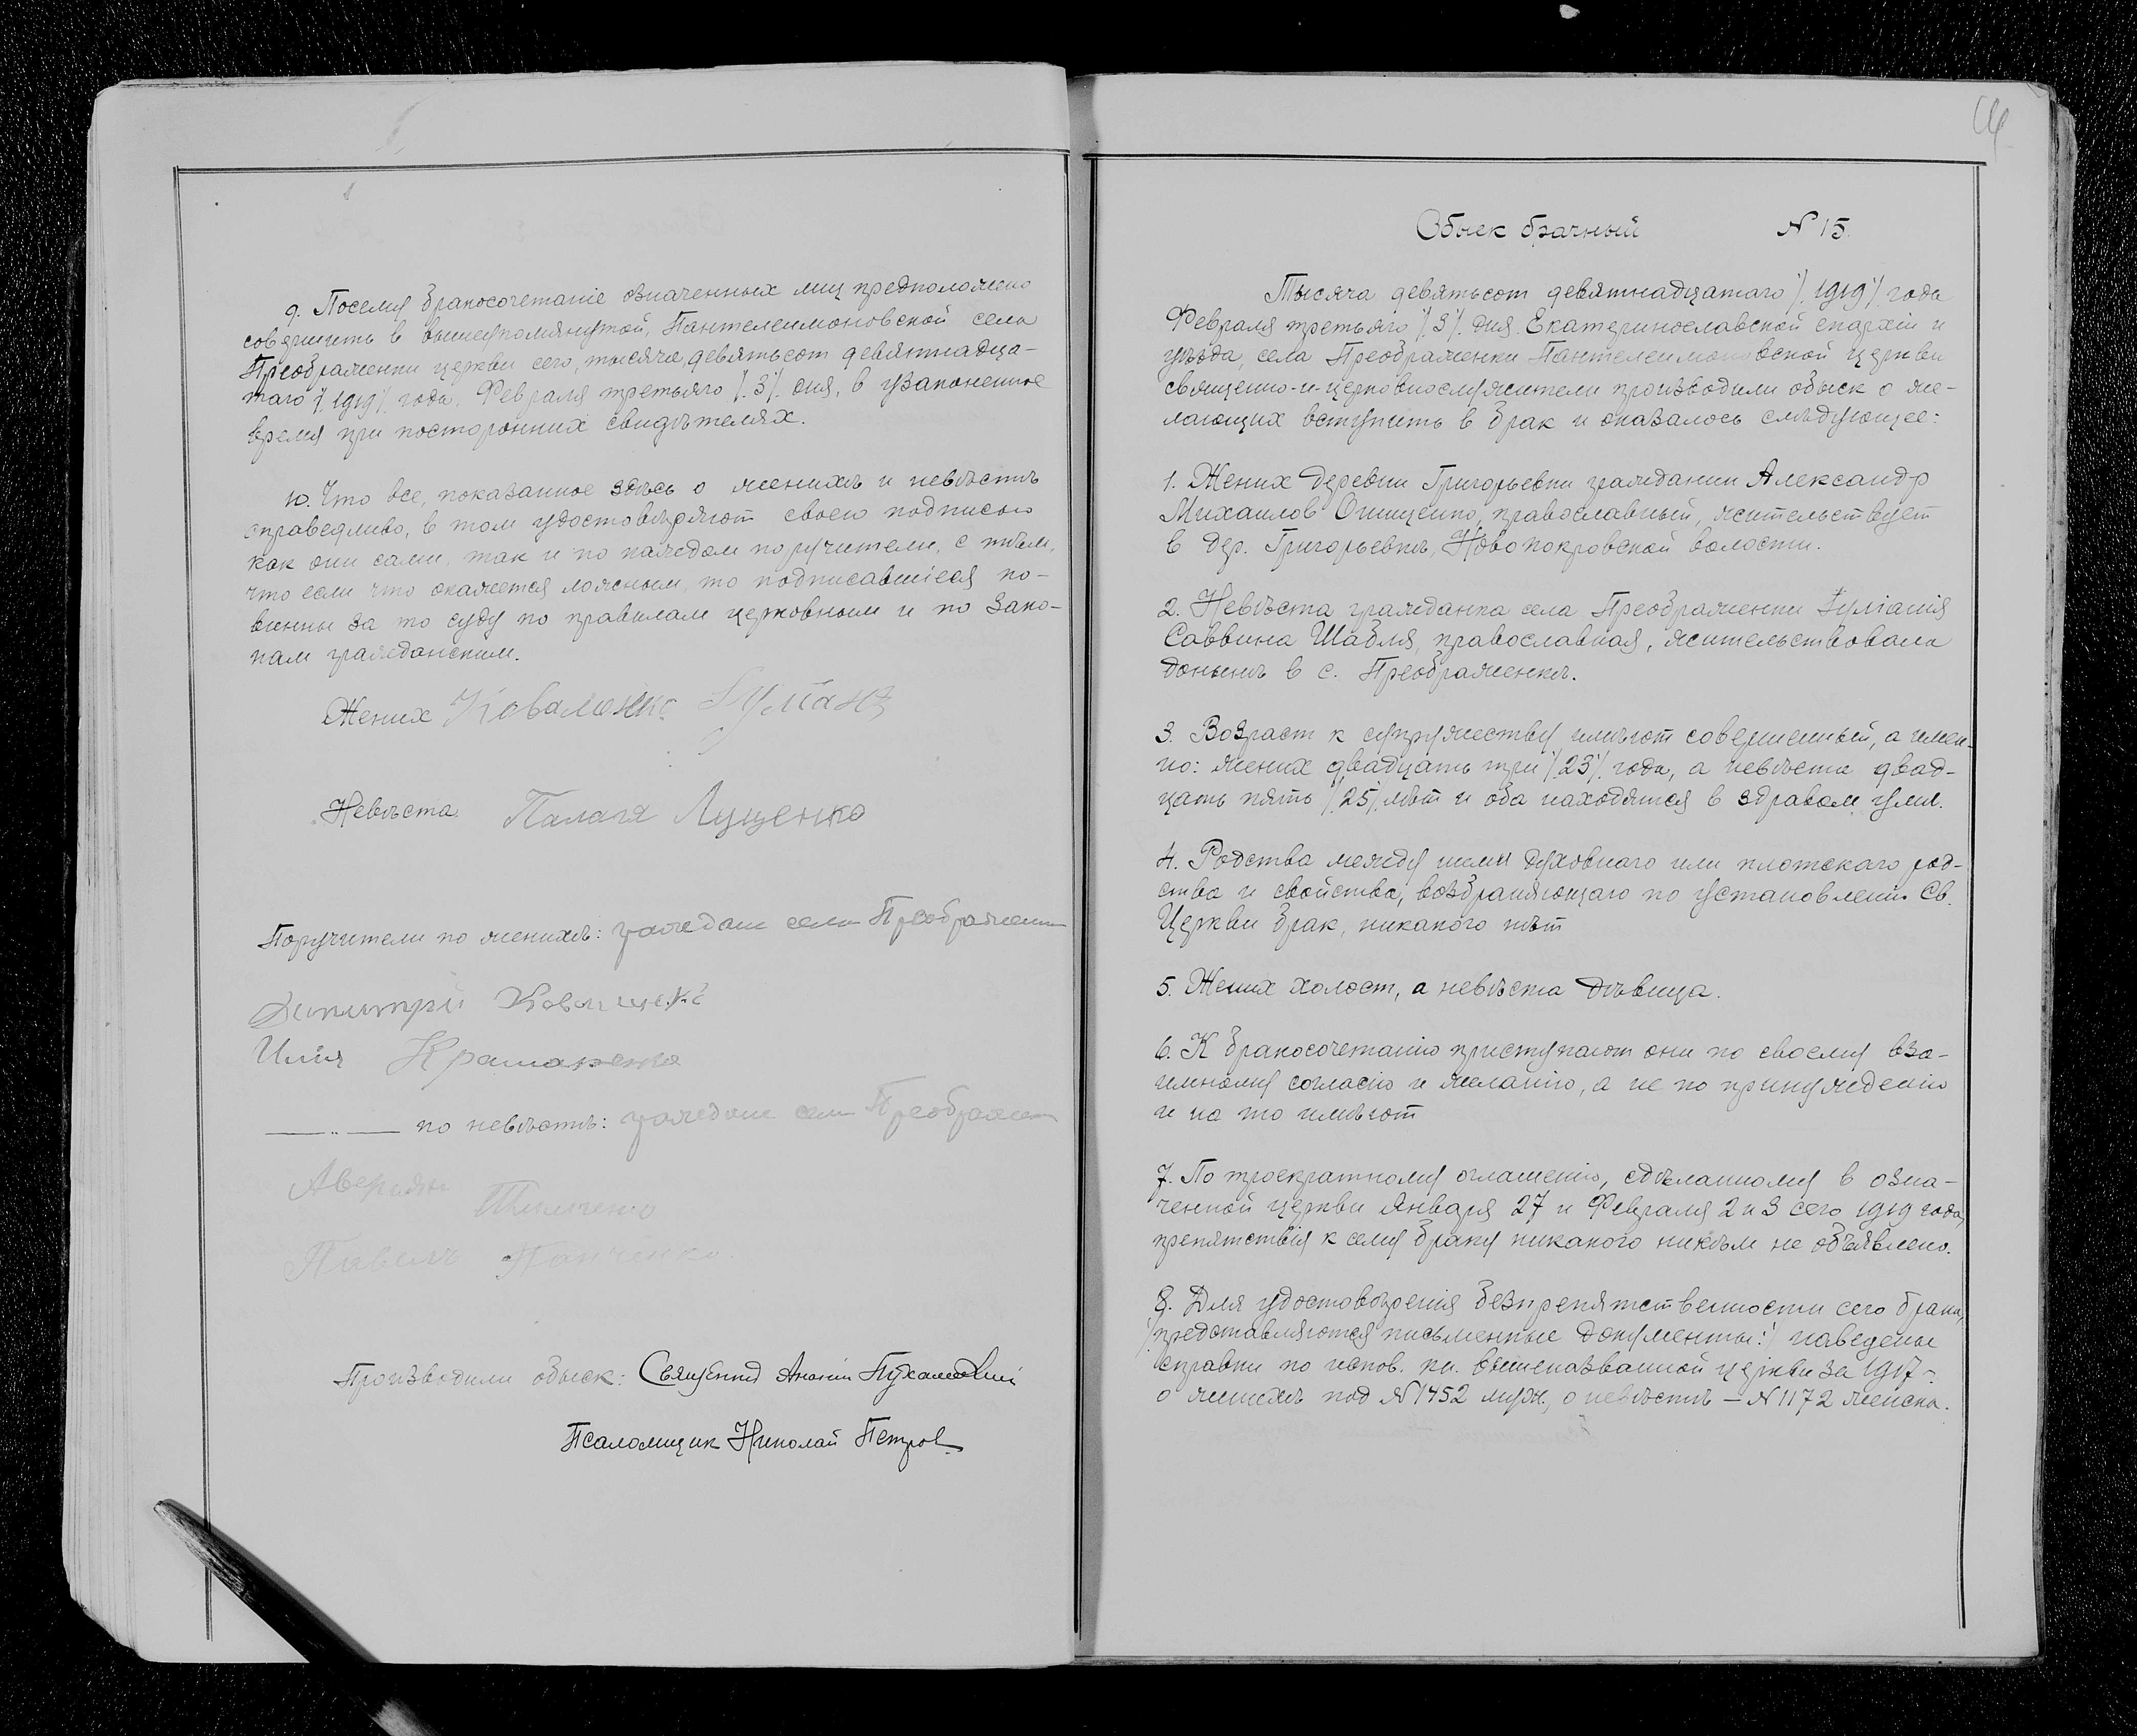 9. Посему бракосочетаніе означенных лиц предположено
совершить в вышеупомянутой, Пантелеимоновской села
Преображенки церкви сего, тысяча девятьсот девятнадца-
таго /. 1919 /. года, Февраля третьяго /. 3 /. дня, в узаконенное
время при посторонних свидѣтелях.
10. Что все, показанное здѣсь о женихѣ и невѣстѣ
справедливо, в том удостовѣряют своею подписью
как они сами, так и по каждом поручители, с тѣм,
что если что окажется ложным, то подписавшіеся по-
винны за то суду по правилам церковным и по Зако-
нам гражданским.
Жених Коваленко
Невѣста Палагя Луценко
Поручители по женихѣ: граждане села Преображенки
Димитрій
Илія
—„— по невѣстѣ: граждане села Преображен
Аверьян
Павелъ Панченко
Производили обыск: Священник
Псаломщик Николай Петров
Обыск брачный № 15.
Тысяча девятьсот девятнадцатаго /. 1919 /. года
Февраля третьяго /. 3 /. дня. Екатеринославской епархіи и
уѣзда, села Преображенки Пантелеимоновской церкви
священно-и-церковнослужители производили обыск о же-
лающих вступить в брак и оказалось слѣдующее:
1. Жених деревни Григорьевки гражданин Александр
Михаилов Онищенко, православный, жительствует
в дер. Григорьевкѣ, Новопокровской волости.
2. Невѣста гражданка села Преображенки Іуліанія
Саввина Шабля, православная, жительствовала
донынѣ в с. Преображенкѣ.
3. Возраст к супружеству имѣют совершенный, а имен-
но: жених двадцать три /. 23 /. года, а невѣста двад-
цать пять /. 25 /. лѣт и оба находятся в здравом умѣ.
4. Родства между ими духовнаго или плотскаго род-
ства и свойства, возбраняющаго по установленію Св.
Церкви брак, никакого нѣт
5. Жених холост, а невѣста дѣвица.
6. К бракосочетанію приступают они по своему вза-
имному согласію и желанію, а не по принужденію
и на то имѣют
7. По троекратному оглашенію, сдѣланному в озна-
ченной церкви Января 27 и Февраля 2 и 3 сего 1919 года,
препятствія к сему браку никакого никѣм не объявлено.
8. Для удостовѣренія безпрепятственности сего брака,
/представляются письменные документы:/ наведены
справки по испов. кн. вышеназванной церкви за 1917 –
о женихѣ под № 1452 мужс., о невѣстѣ — № 1172 женска.